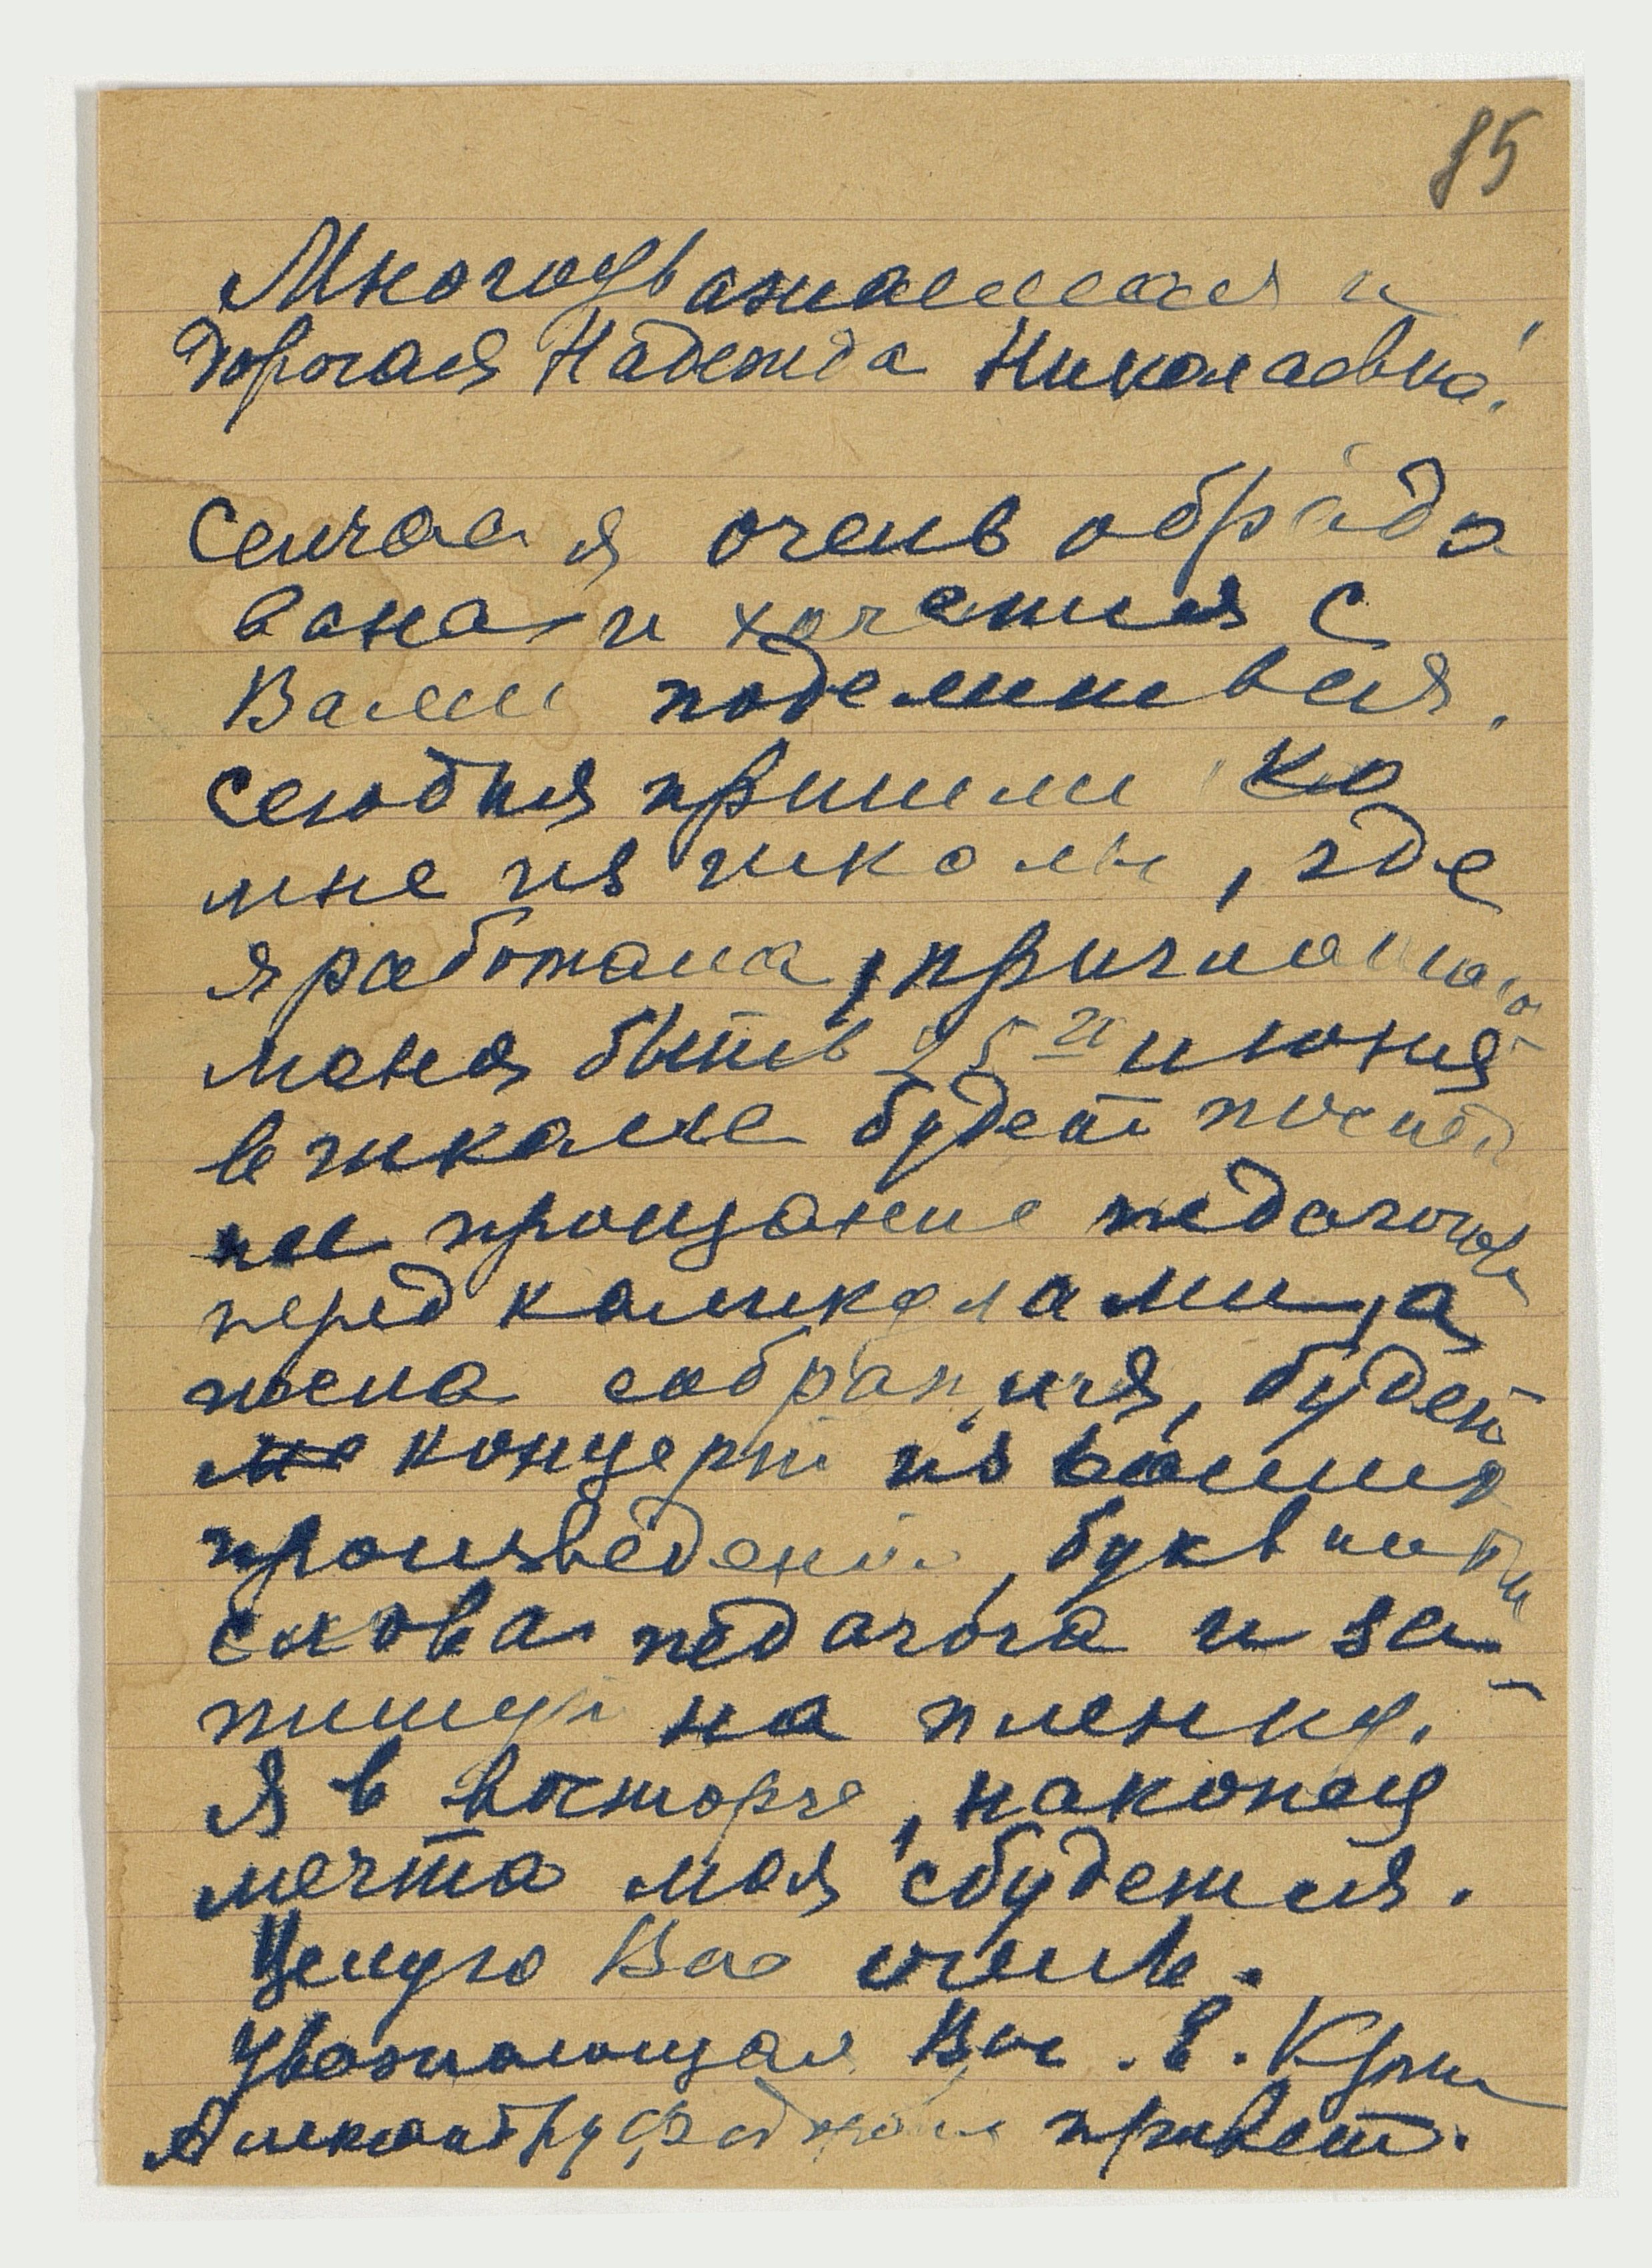 85
Многоуважаемая и
дорогая Надежда Николаевна!
Сейчас я очень обрадо
вана и хочется с
Вами поделиться.
Сегодня пришли ко
мне из школы, где
я работала, приглашают
меня быть 25 июня
в школе будет послед
нее прощание педагогов
перед каникулами, а
после собрания, будет
концерт из ваших
произведений, буквы
слова педагога и за
пишут на пленку.
Я в восторге, наконец
мечта моя сбудется.
Целую Вас очень.
Уважающая Вас. Е.
Александру Федоровичу привет.